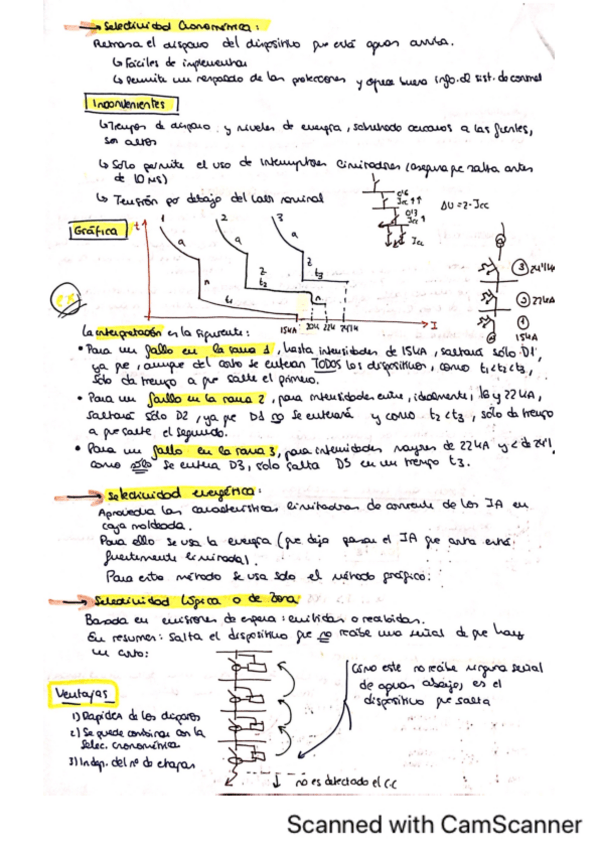 Selectividad Cronométrica:
Retrasa el disparo del dispositivo que está aguas arriba.
↳ Fáciles de implementar
↳ Permite un respaldo de las protecciones y ofrece buena info. del sist. de control
Inconvenientes
↳ Tiempos de disparo y niveles de energía, sobretodo cercanos a las fuentes, son altos
↳ Solo permite el uso de interruptores limitadores (asegura que salta antes de 10 ms)
↳ Tensión por debajo del valor nominal
ΔU = Z · Icc
Icc ↑↑
Icc ↑
Icc
Gráfica
t
1
2
3
t1
t2
t3
15kA
20kA
22kA
24'1kA
I
3 24'1kA
2 22kA
1
15kA
La interpretación es la siguiente:
• Para un fallo en la rama 1, hasta intensidades de 15kA, saltará sólo D1,
ya que, aunque del corto se enteran TODOS los dispositivos, como t1<t2<t3,
sólo da tiempo a que salte el primero.
• Para un fallo en la rama 2, para intensidades entre, idealmente, 16 y 22kA,
saltará sólo D2, ya que D1 no se enterará y como t2<t3, sólo da tiempo
a que salte el segundo.
• Para un fallo en la rama 3, para intensidades mayores de 22kA y < de 24'1,
como sólo se entera D3, solo salta D3 en un tiempo t3.
Selectividad energética:
Aprovecha las características limitadoras de corriente de los IA en
caja moldeada.
Para ello se usa la energía (que deja pasar el IA que anta está
fuertemente limitada).
Para este método se usa solo el método gráfico.
Selectividad Lógica o de Zona:
Basada en emisiones de espera: emitidas o recibidas.
En resumen: Salta el dispositivo que no recibe una señal de que hay
un corto:
Ventajas
1) Rapidez de los disparos
2) Se puede combinar con la
selec. cronométrica
3) Indep. del nº de etapas
Como este no recibe ninguna señal
de aguas abajo, es el
dispositivo que salta
no es detectado el CC
Scanned with CamScanner